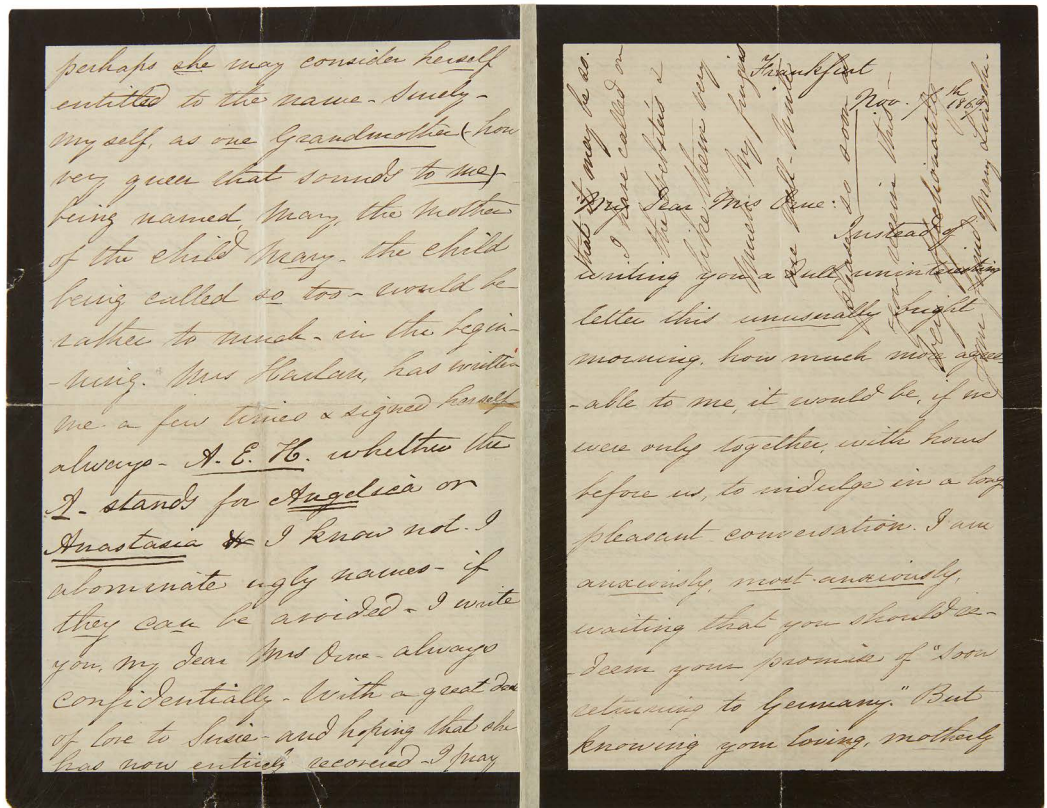 perhaps she may consider herself
entitled to the name - Surely -
myself, as one Grandmother (how
very queer that sounds to me) -
being named Mary, the mother
of the child Mary - the child
being called so too - would be
rather to much - in the begin-
-ning. Mrs Harlan, has written
me a few times & signed herself
always - A. E. H. whether the
A - stands for Angelica or
Anastasia I know not. I
abominate ugly names - if
they can be avoided - I write
you, my dear Mrs Orne - always
confidentially - With a great deal
of love to Susie - and hoping that she
has now entirely recovered - I pray
that it may be so.
I have called on
the Websters &
like them very
much. My fingers
are half
so soon
Very affectionately
your friend Mary Lincoln.
Frankfurt
Nov. 7th
My Dear Mrs Orne:
Instead of
writing you a dull uninteresting
letter this unusually bright
morning, how much more agree
-able to me, it would be, if we
were only together, with hours
before us, to indulge in a long
pleasant conversation. I am
anxiously, most anxiously,
waiting that you should re-
-deem your promise of "soon
returning to Germany." But
knowing your loving, motherly